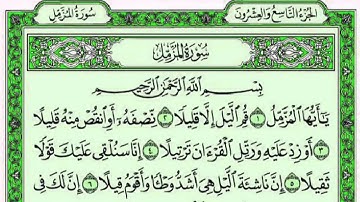 الجزء التاسع والعشرون
سورة المزمل
سورة المزمل
بسم الله الرحمن الرحيم
يَٰٓأَيُّهَا ٱلْمُزَّمِّلُ ١ قُمِ ٱلَّيْلَ إِلَّا قَلِيلًا ٢ نِّصْفَهُۥٓ أَوِ ٱنقُصْ مِنْهُ قَلِيلًا
٣ أَوْ زِدْ عَلَيْهِ وَرَتِّلِ ٱلْقُرْءَانَ تَرْتِيلًا ٤ إِنَّا سَنُلْقِى عَلَيْكَ قَوْلًا
ثَقِيلًا ٥ إِنَّ نَاشِئَةَ ٱلَّيْلِ هِىَ أَشَدُّ وَطْـًٔا وَأَقْوَمُ قِيلًا ٦ إِنَّ لَكَ فِى